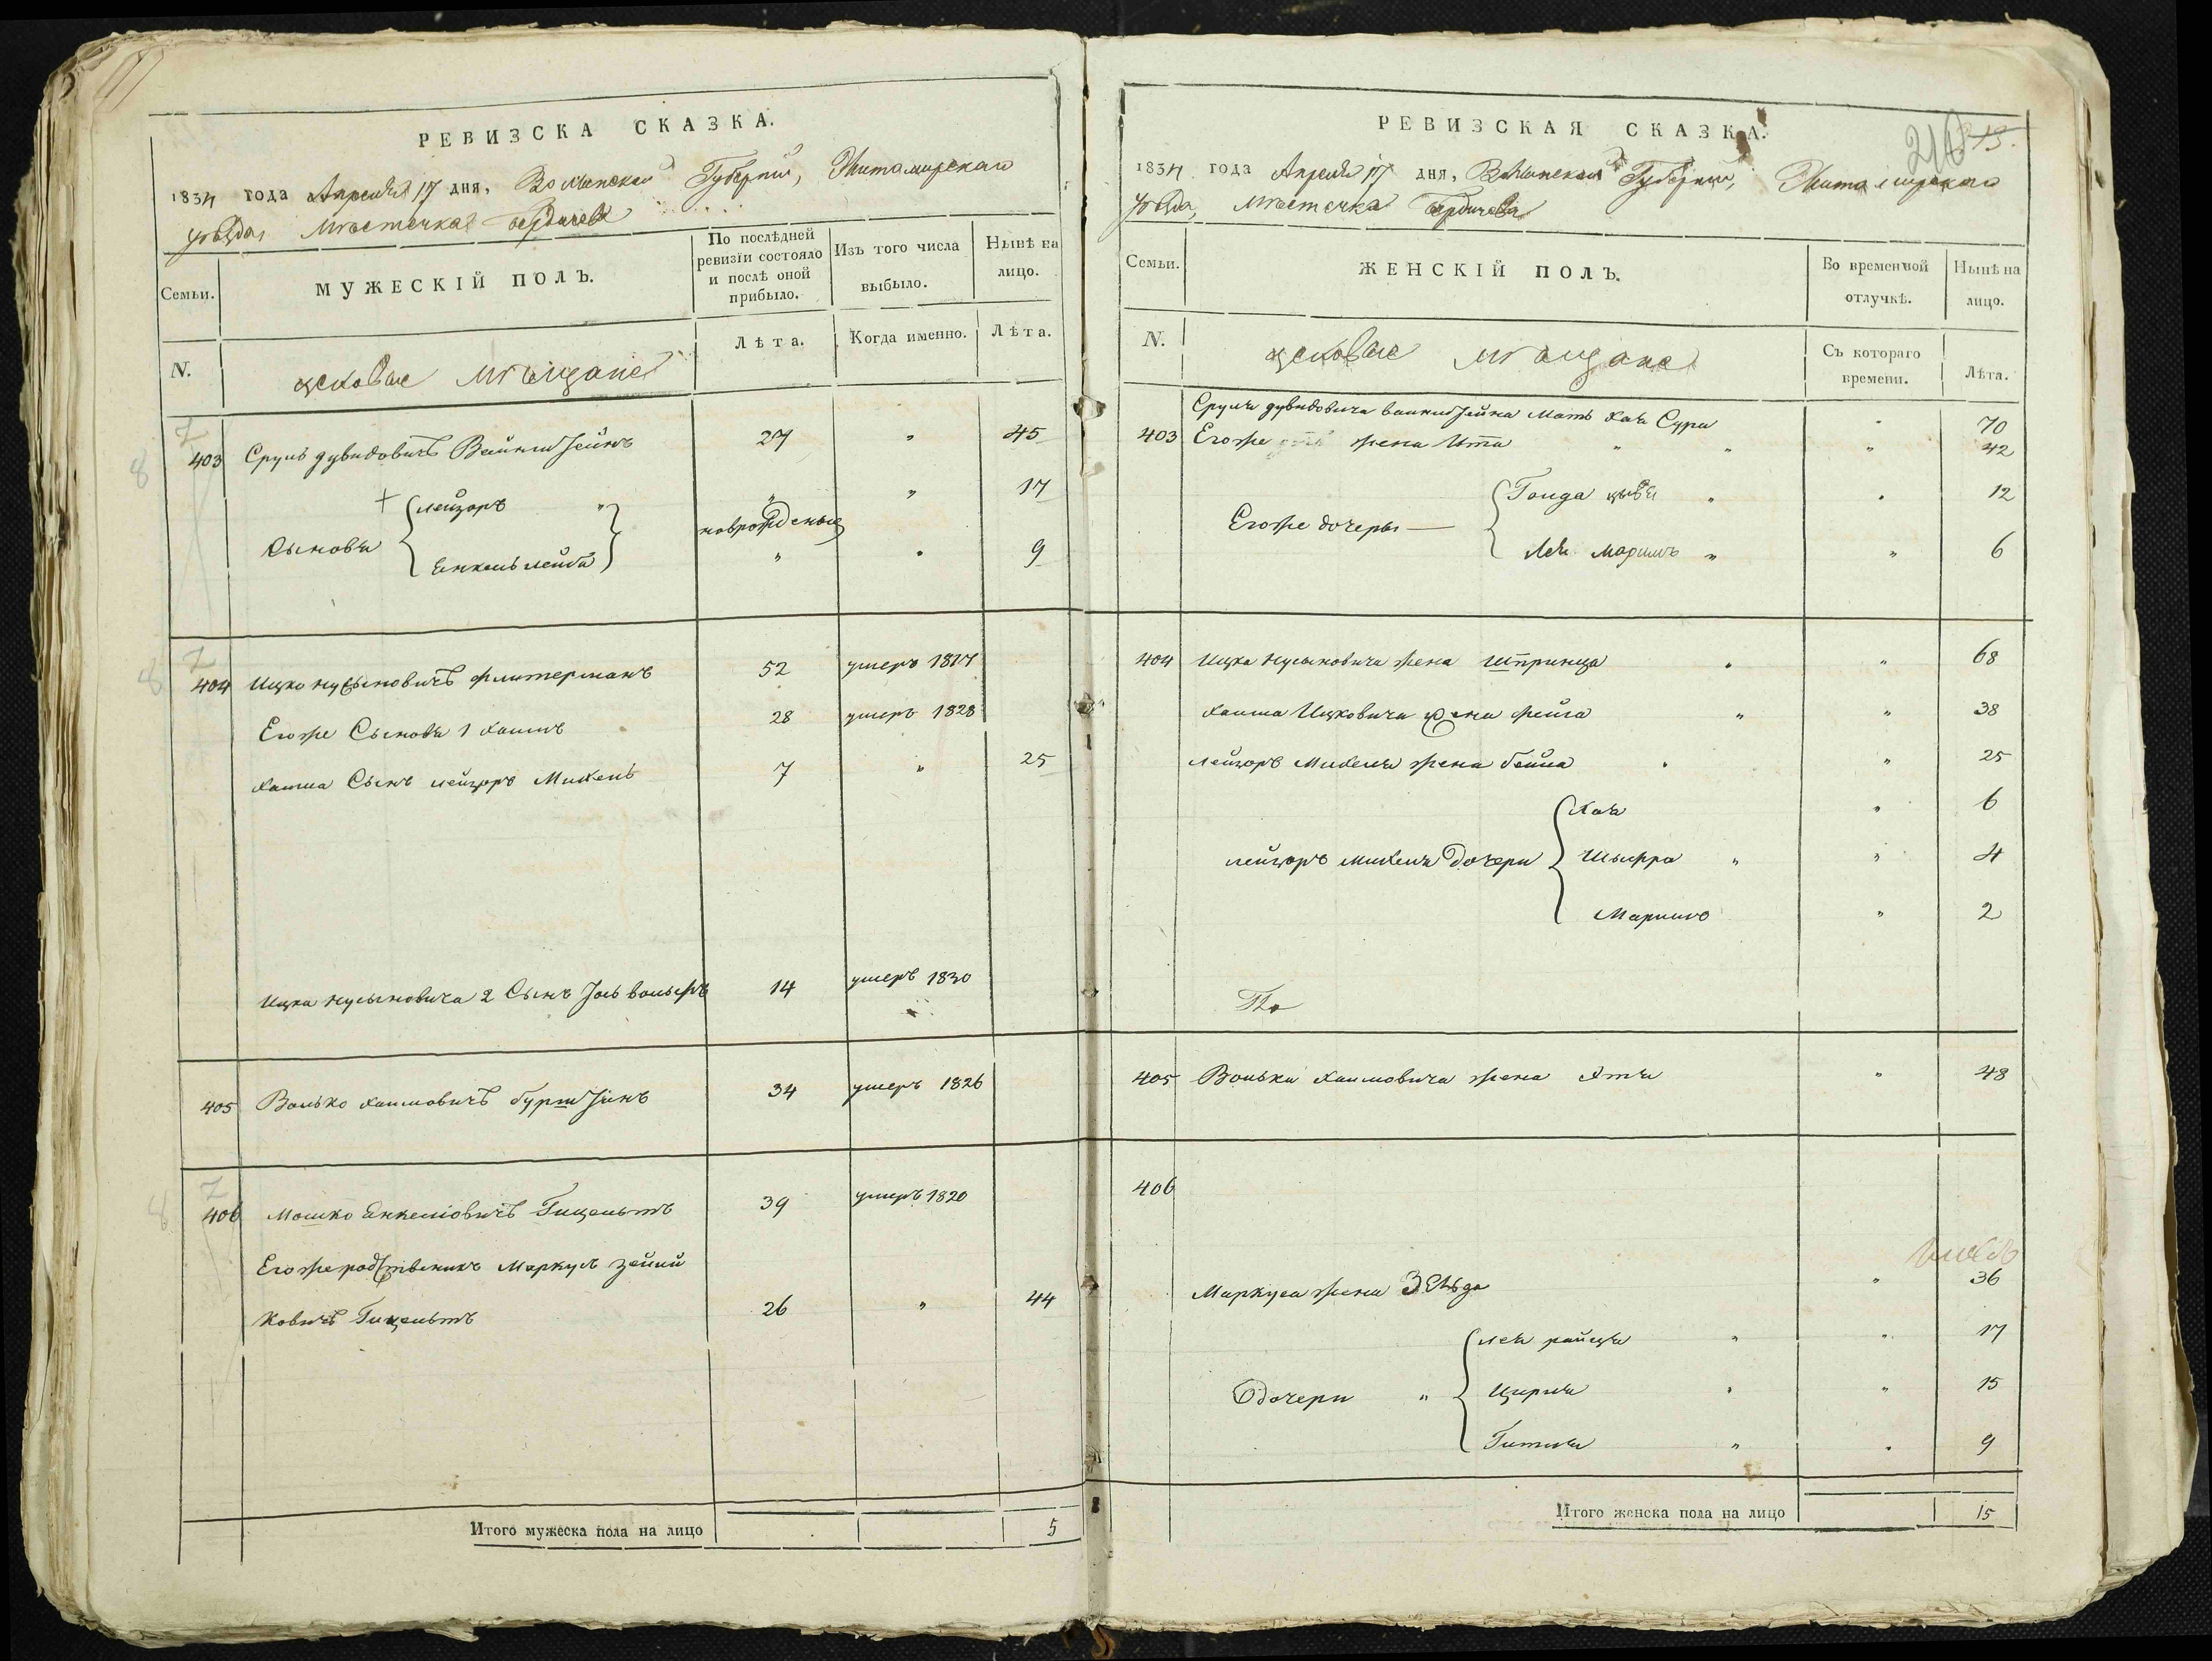 РЕВИЗСКА СКАЗКА.
1834 года Апреля 17 дня, Волынской Губернии, Житомирскаго
уѣзда, Мѣстечка Бердичева
Семьи.
МУЖЕСКІЙ ПОЛЪ.
По послѣдней ревизіи состояло и послѣ оной прибыло.
Изъ того числа выбыло.
Нынѣ на лицо.
N.
цеховые мѣщане
Лѣта.
Когда именно.
Лѣта.
403 Сруль дувидовичъ Вайнштейнъ 27 " 45
лейзоръ " " " 17
Сыновья новрожденые
Енкель лейба " " 9
404 Ицко нусыновичъ флитерманъ 52 умеръ 1817
Егоже Сыновья 1 хаимъ 28 умеръ 1828
хаима Сынъ лейзоръ Михель 7 " 25
Ицка нусыновича 2 Сынъ Іось вольфъ 14 умеръ 1830
405 Волько хаимовичъ бурштинъ 34 умеръ 1826
406 Мошко Енкеліовичъ Гицельтъ 39 умеръ 1820
Егоже родственикъ Маркусъ зейли
ковичъ Гицельтъ 26 " 44
Итого мужеска пола на лицо 5
РЕВИЗСКАЯ СКАЗКА.
1834 года Апреля 17 дня, Волынской Губернии, Житомирскаго
уѣзда, Мѣстечка Бердичева
Семьи.
ЖЕНСКІЙ ПОЛЪ.
Во временной отлучкѣ.
Нынѣ на лицо.
N.
цеховые мѣщане
Съ котораго времени.
Лѣта.
Сруля дувидовича вайнштейна Мать хая Сура " 70
403 Егоже жена Ита " " " 42
Голда цывя " " 12
Егоже дочеры
Лея Маримъ " " 6
404 Ицка нусыновича жена Шпринца " " 68
хаима Ицковича жена фейга " " 38
лейзоръ Михеля жена бейла " " 25
хая " 6
лейзоръ михеля дочери Шыфра " " 4
Маримъ " 2
405 Волька хаимовича жена Этя " 48
406
Маркуса жена Зельда " 36
лея райця " " 17
дочери " Цирля " " 15
Гитля " " 9
Итого женска пола на лицо 15